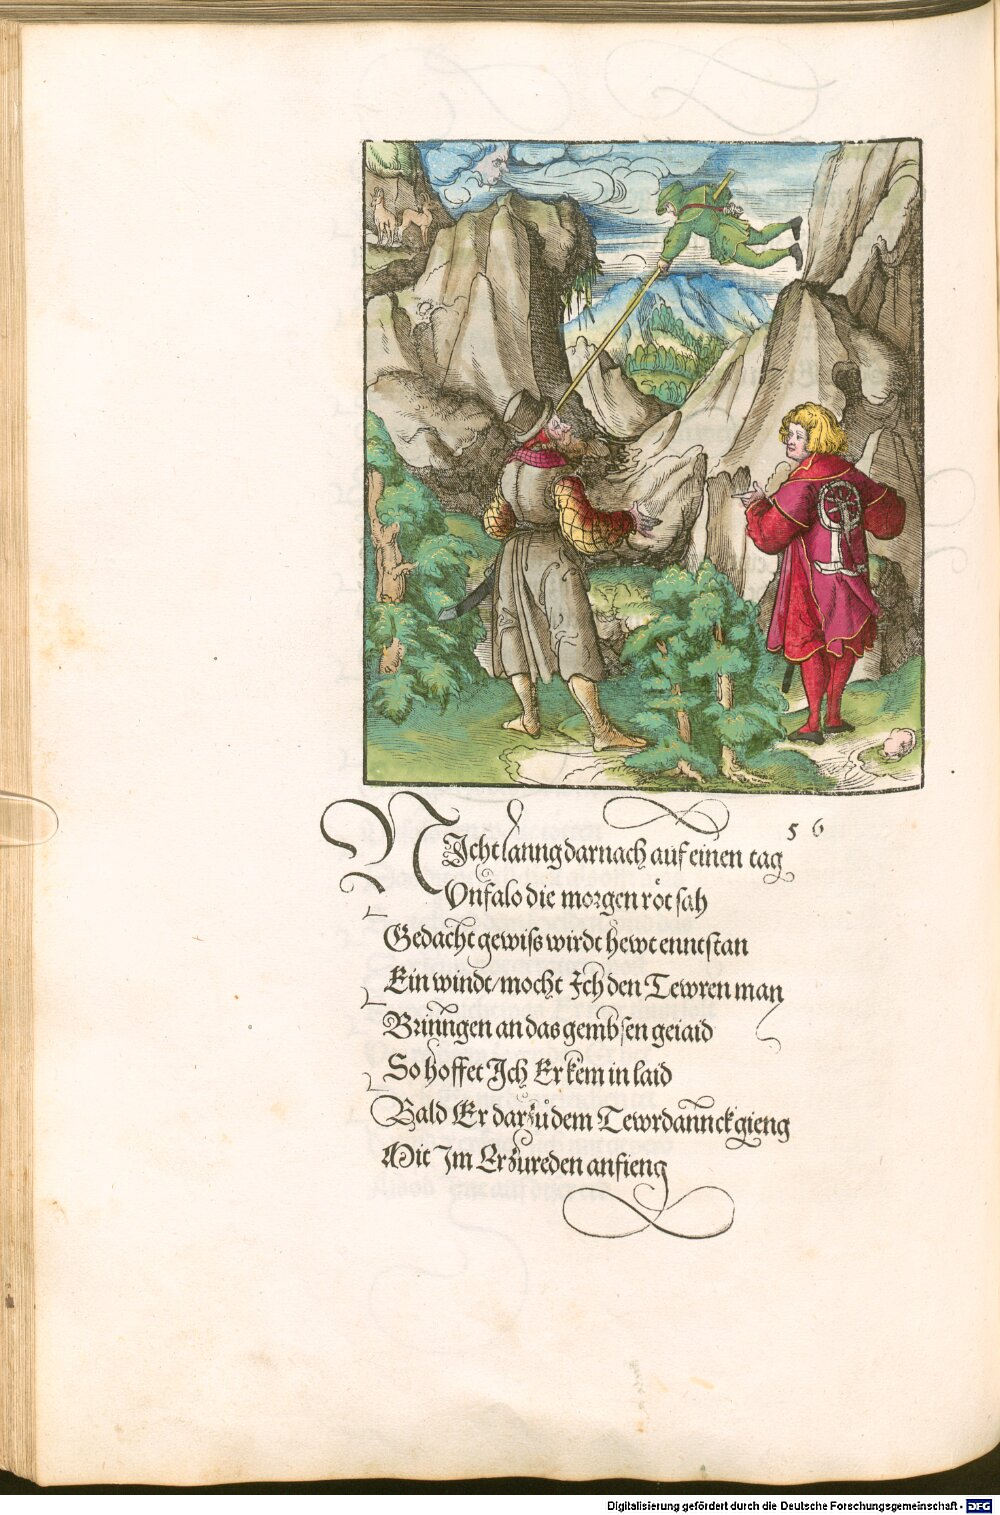 56
NIcht lanng darnach auf einen tag
Vnfalo die morgen röt sah
Gedacht gewiss wirdt hewt enntstan
Ein windt/mocht Ich den Tewren man
Brinngen an das gembsen geiaid
So hoffet Ich Er kem in laid
Bald Er darzů dem Tewrdannck gieng
Mit Im Er zureden anfieng
Digitalisierung gefördert durch die Deutsche Forschungsgemeinschaft - DFG